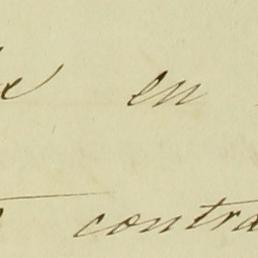 en
contra